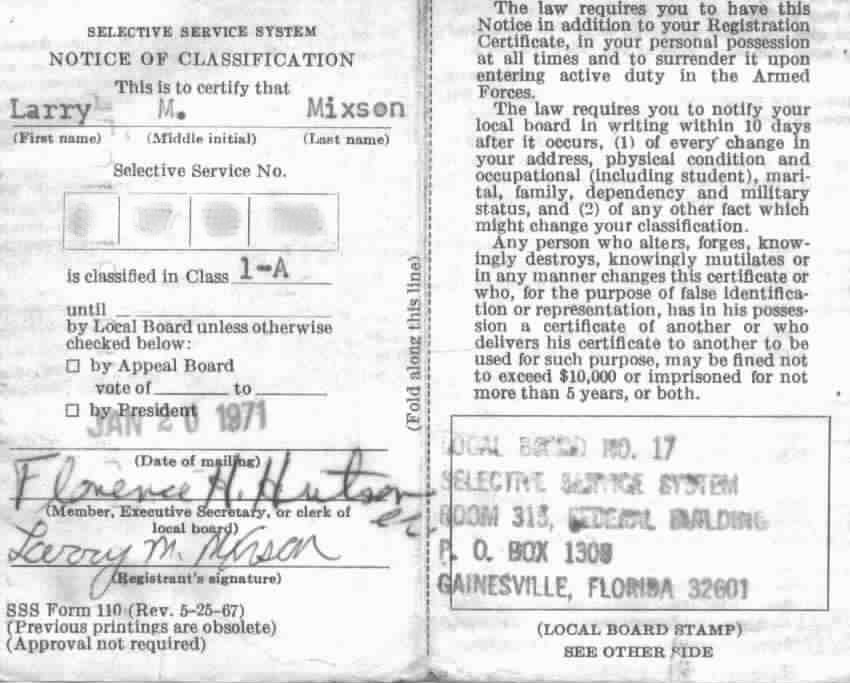 SELECTIVE SERVICE SYSTEM
NOTICE OF CLASSIFICATION
This is to certify that
Larry M. Mixson
(First name) (Middle initial) (Last name)
Selective Service No.
is classified in Class 1-A
until
by Local Board unless otherwise
checked below:
☐ by Appeal Board
vote of ______ to ______
☐ by President
JAN 20 1971
(Date of mailing)
Florence H. Hutson
(Member, Executive Secretary, or clerk of
local board)
Larry M. Mixson
(Registrant's signature)
SSS Form 110 (Rev. 5-25-67)
(Previous printings are obsolete)
(Approval not required)
(Fold along this line)
The law requires you to have this
Notice in addition to your Registration
Certificate, in your personal possession
at all times and to surrender it upon
entering active duty in the Armed
Forces.
The law requires you to notify your
local board in writing within 10 days
after it occurs, (1) of every change in
your address, physical condition and
occupational (including student), mari-
tal, family, dependency and military
status, and (2) of any other fact which
might change your classification.
Any person who alters, forges, know-
ingly destroys, knowingly mutilates or
in any manner changes this certificate or
who, for the purpose of false identifica-
tion or representation, has in his posses-
sion a certificate of another or who
delivers his certificate to another to be
used for such purpose, may be fined not
to exceed $10,000 or imprisoned for not
more than 5 years, or both.
LOCAL BOARD NO. 17
SELECTIVE SERVICE SYSTEM
ROOM 313, FEDERAL BUILDING
P. O. BOX 1308
GAINESVILLE, FLORIDA 32601
(LOCAL BOARD STAMP)
SEE OTHER SIDE